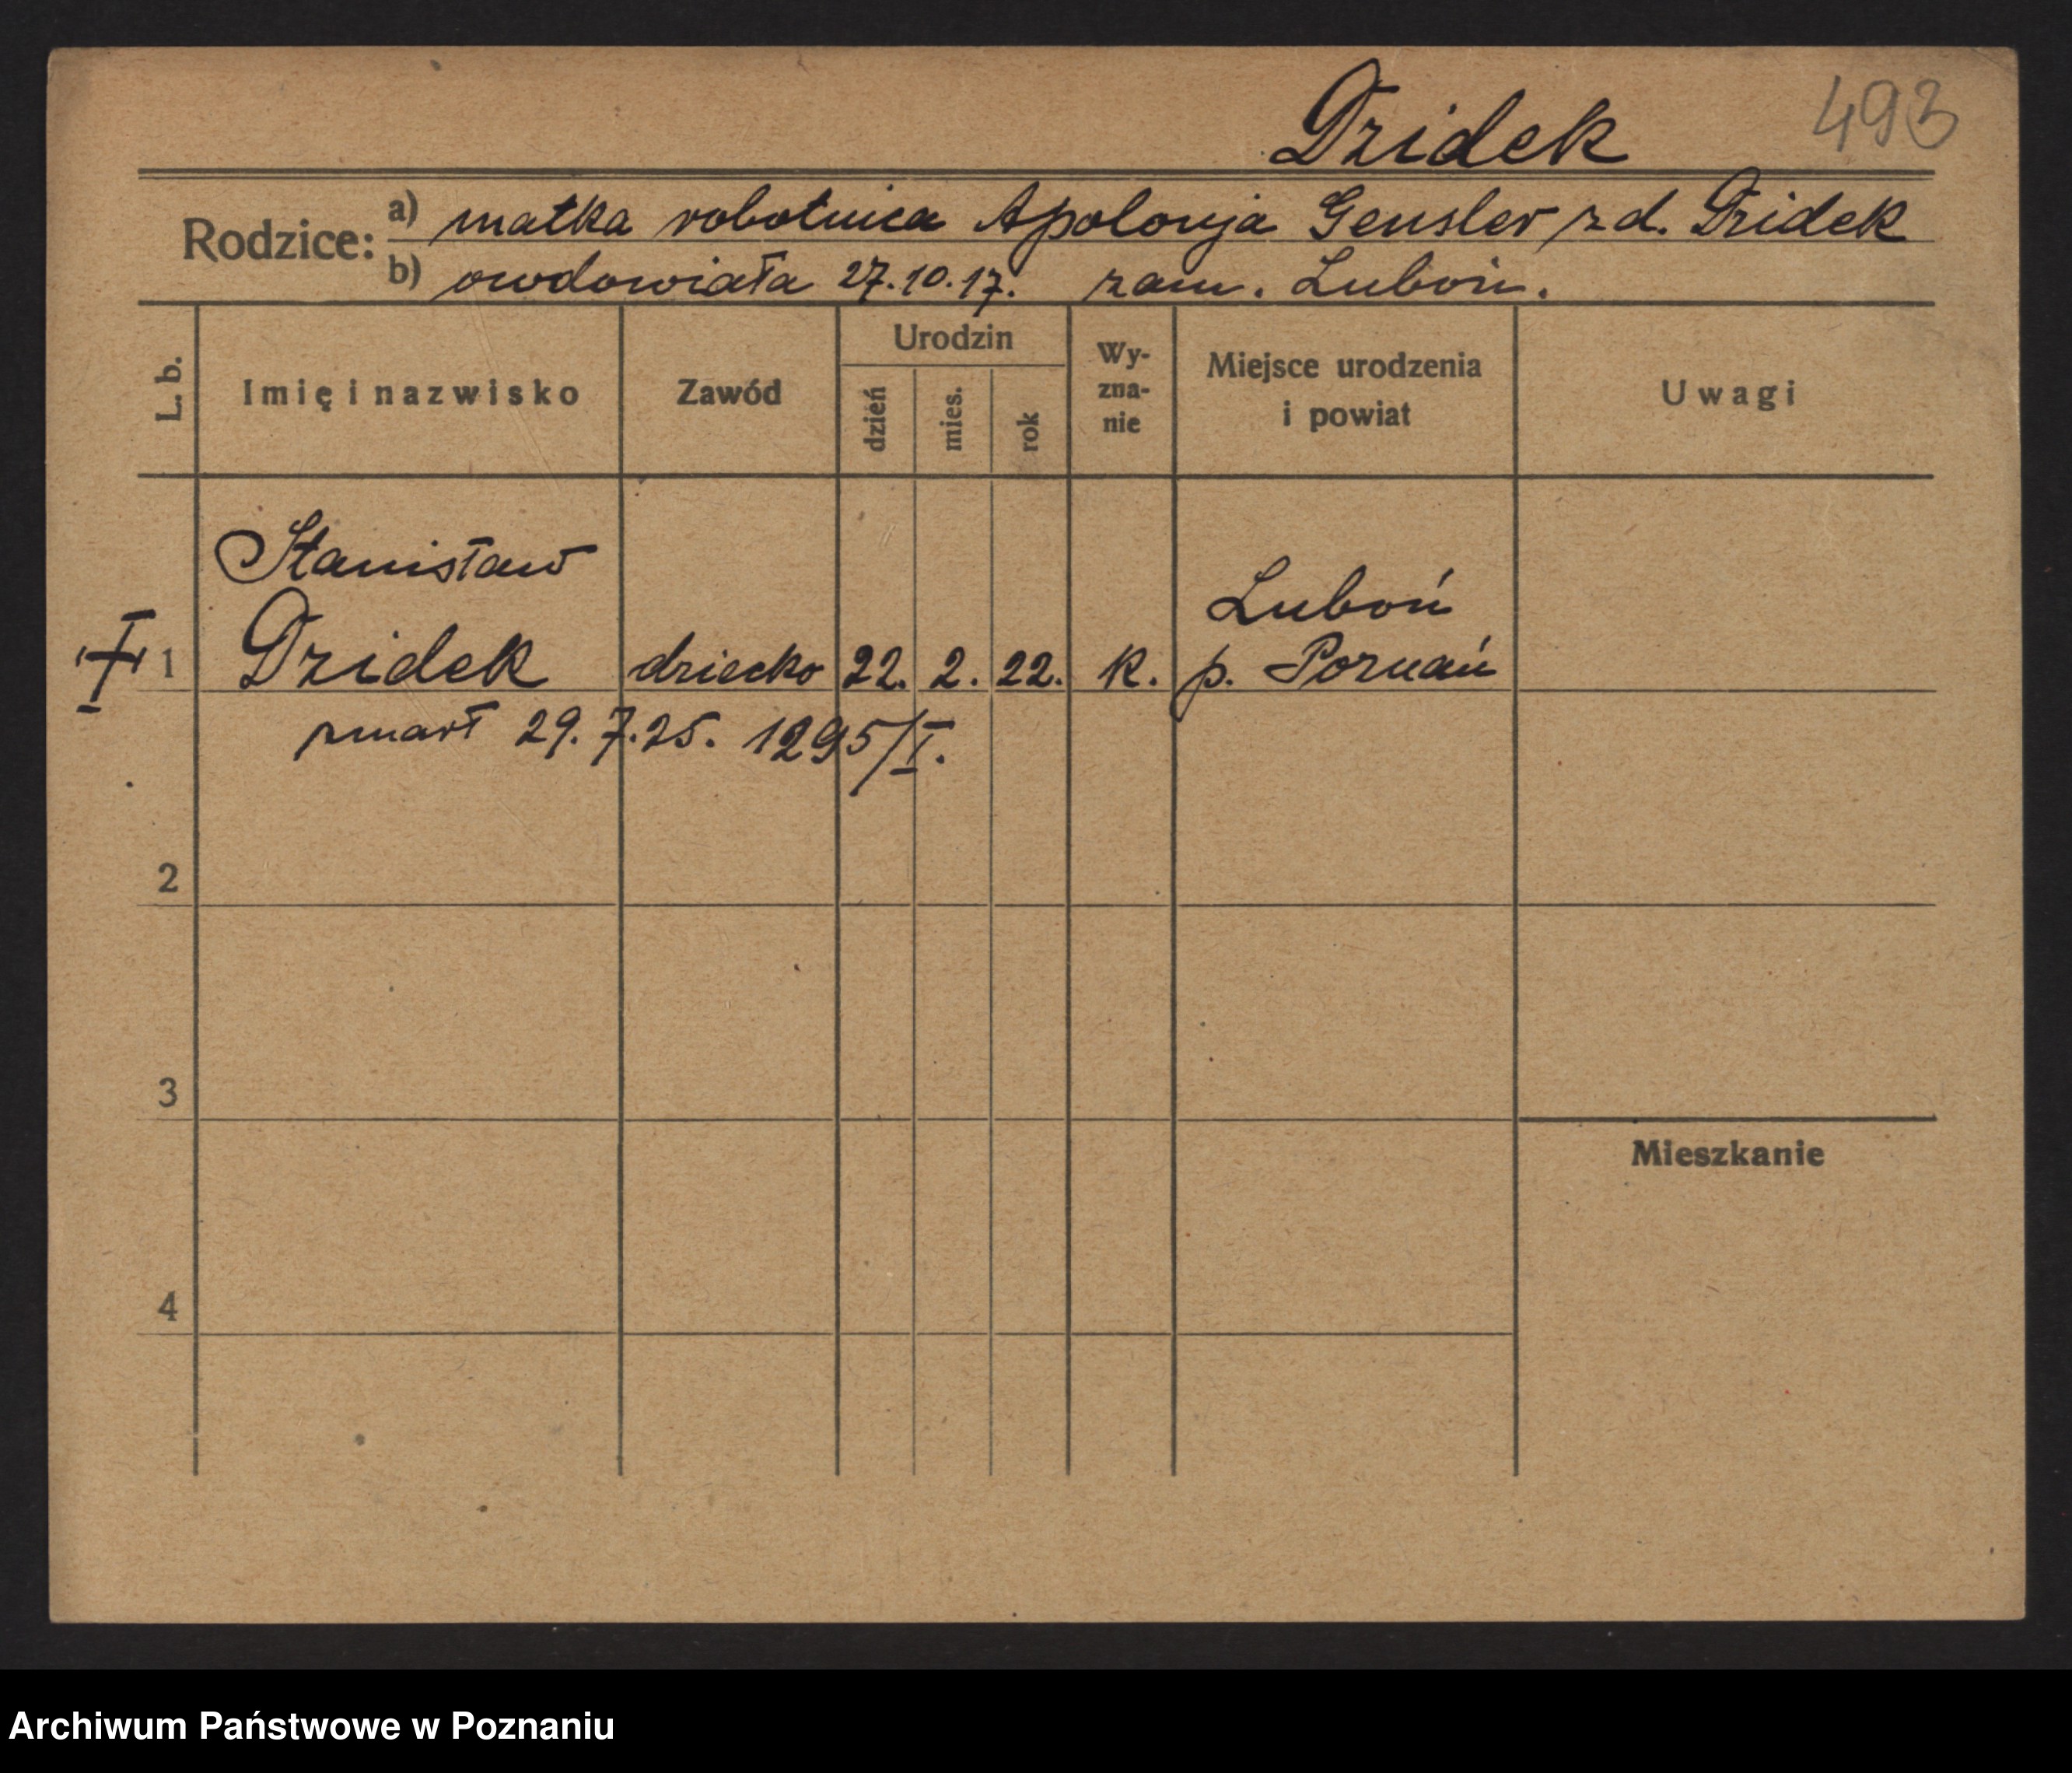 Dzidek 493
Rodzice: a) matka robotnica Apolonja Gensler z d. Dzidek
b) owdowiała 27.10.17. zam. Luboń.
L. b. Imię i nazwisko Zawód Urodzin dzień mies. rok Wy-zna-nie Miejsce urodzenia i powiat Uwagi
Stanisław
Luboń
1 Dzidek dziecko 22. 2. 22. k. p. Poznań
zmarł 29.7.25. 1295/I.
2
3
Mieszkanie
4
Archiwum Państwowe w Poznaniu